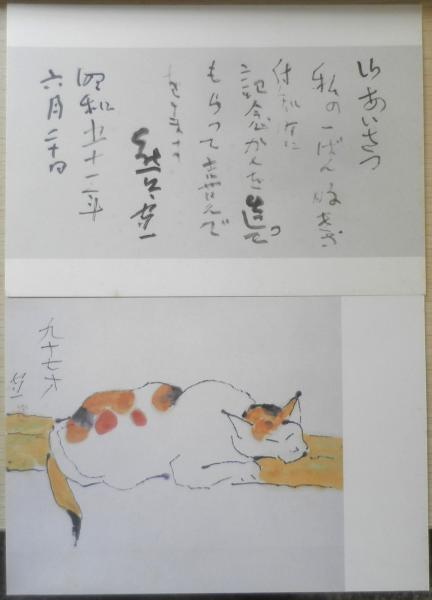 ごあいさつ
私の一ばん好きな
付知に
記念かんを造って
もらって喜んで
をります
熊谷守一
昭和五十一年
六月二十日
九十七才
守一